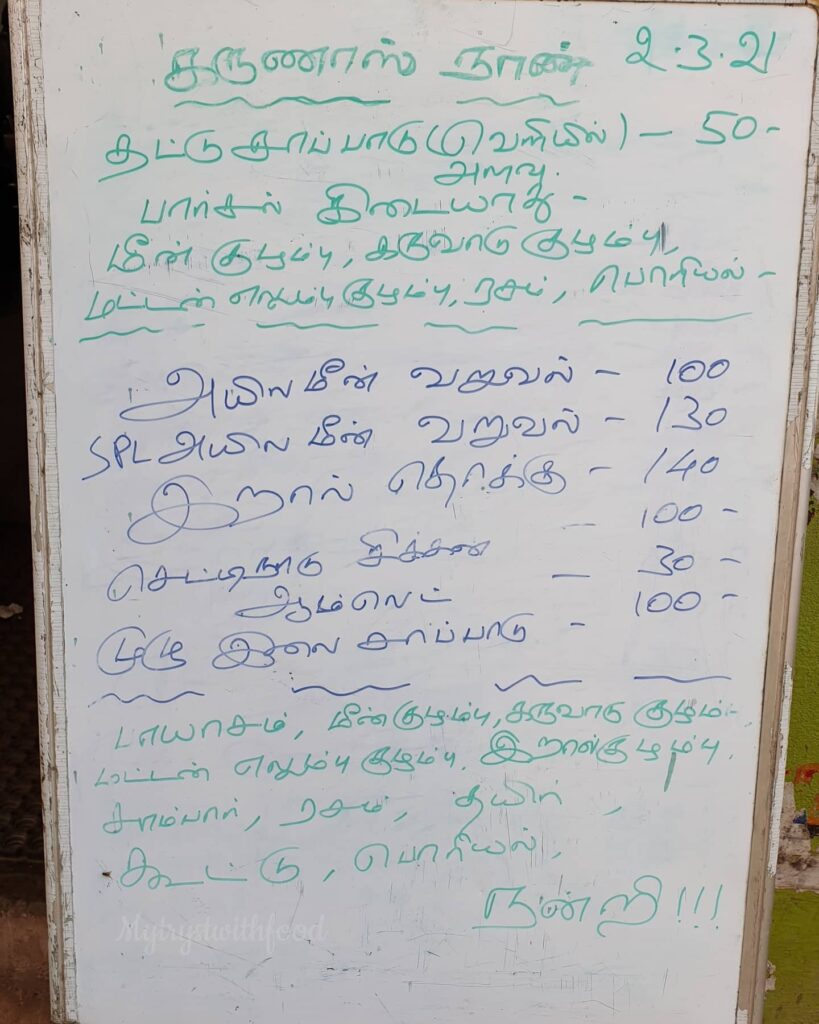 கருணாஸ் நான் 2.3.21
தட்டு சாப்பாடு (வெளியில்) - 50-
அளவு.
பார்சல் கிடையாது -
மீன் குழம்பு, கருவாடு குழம்பு,
மட்டன் எலும்பு குழம்பு, ரசம், பொரியல் -
அயிலமீன் வறுவல் - 100
SPL அயில மீன் வறுவல் - 130
இறால் தொக்கு - 140
செட்டிநாடு சிக்கன் - 100 -
ஆம்லெட் - 30 -
முழு இலை சாப்பாடு - 100 -
பாயாசம், மீன்குழம்பு, கருவாடு குழம்பு,
மட்டன் எலும்பு குழம்பு. இறால்குழம்பு.
சாம்பார், ரசம், தயிர்,
கூட்டு, பொரியல்,
நன்றி!!!
Mytrystwithfood